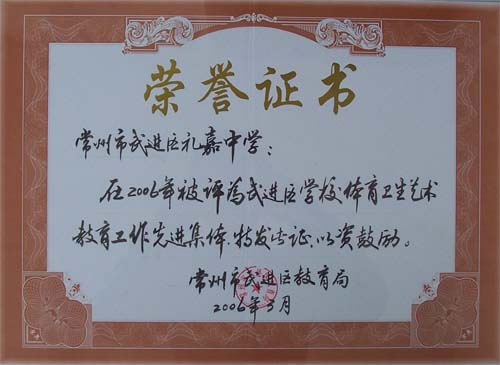 荣誉证书
常州市武进区礼嘉中学：
在2006年被评为武进区学校体育卫生艺术
教育工作先进集体，特发此证，以资鼓励。
常州市武进区教育局
2006年3月